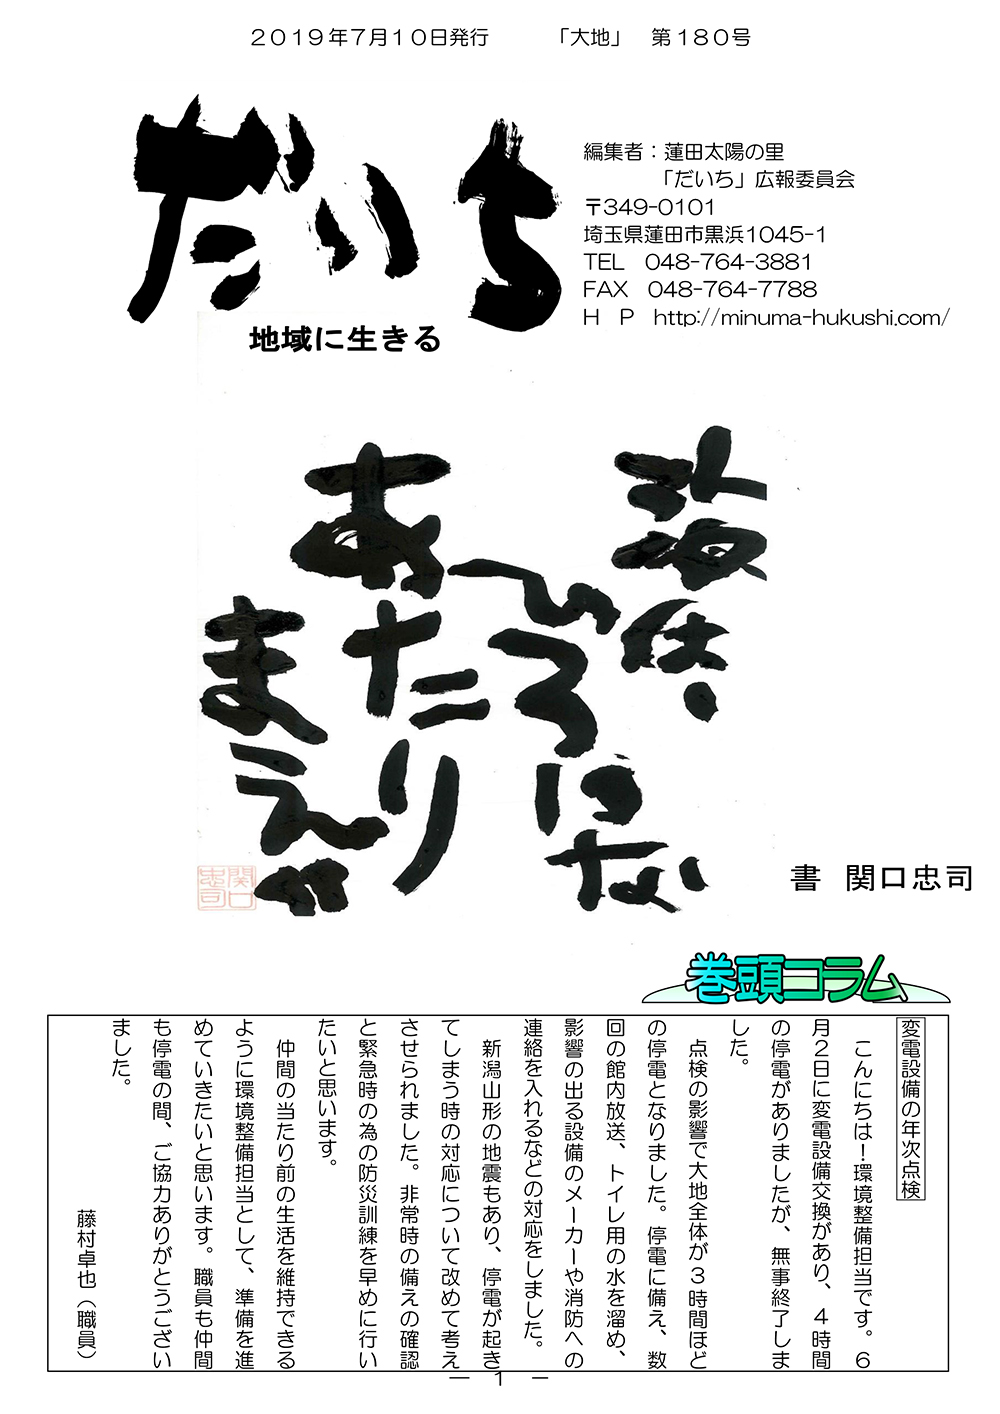 2019年7月10日発行　「大地」　第180号
だいち
地域に生きる
編集者：蓮田太陽の里
「だいち」広報委員会
〒349-0101
埼玉県蓮田市黒浜1045-1
TEL　048-764-3881
FAX　048-764-7788
ＨＰ　http://minuma-hukushi.com/
あたり
まえが
関口忠司
書　関口忠司
巻頭コラム
変電設備の年次点検
こんにちは！環境整備担当です。６
月２日に変電設備交換があり、４時間
の停電がありましたが、無事終了しま
した。
点検の影響で大地全体が３時間ほど
の停電となりました。停電に備え、数
回の館内放送、トイレ用の水を溜め、
影響の出る設備のメーカーや消防への
連絡を入れるなどの対応をしました。
新潟山形の地震もあり、停電が起き
てしまう時の対応について改めて考え
させられました。非常時の備えの確認
と緊急時の為の防災訓練を早めに行い
たいと思います。
仲間の当たり前の生活を維持できる
ように環境整備担当として、準備を進
めていきたいと思います。職員も仲間
も停電の間、ご協力ありがとうござい
ました。
藤村卓也（職員）
― 1 ―